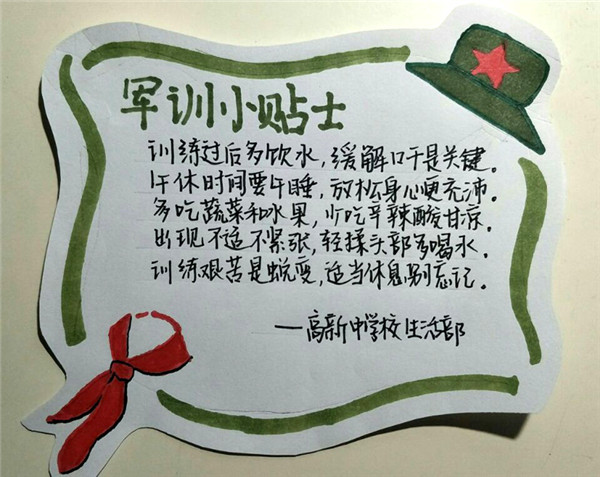 军训小贴士
训练过后多饮水，缓解口干是关键。
午休时间要午睡，放松身心更充沛。
多吃蔬菜和水果，少吃辛辣酸甘凉。
出现不适不紧张，轻揉头部多喝水。
训练艰苦是蜕变，适当休息别忘记。
—高新中学校生活部